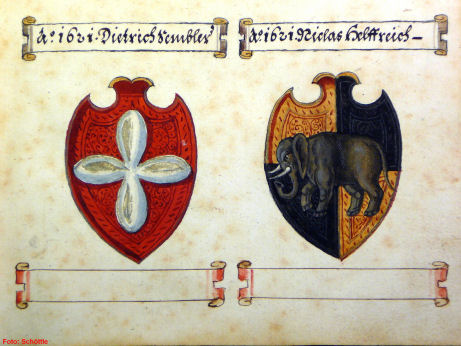 Aº. 1621. Dietrich Sembler
Aº. 1621. Niclas Helffreich
Foto: Schöttle